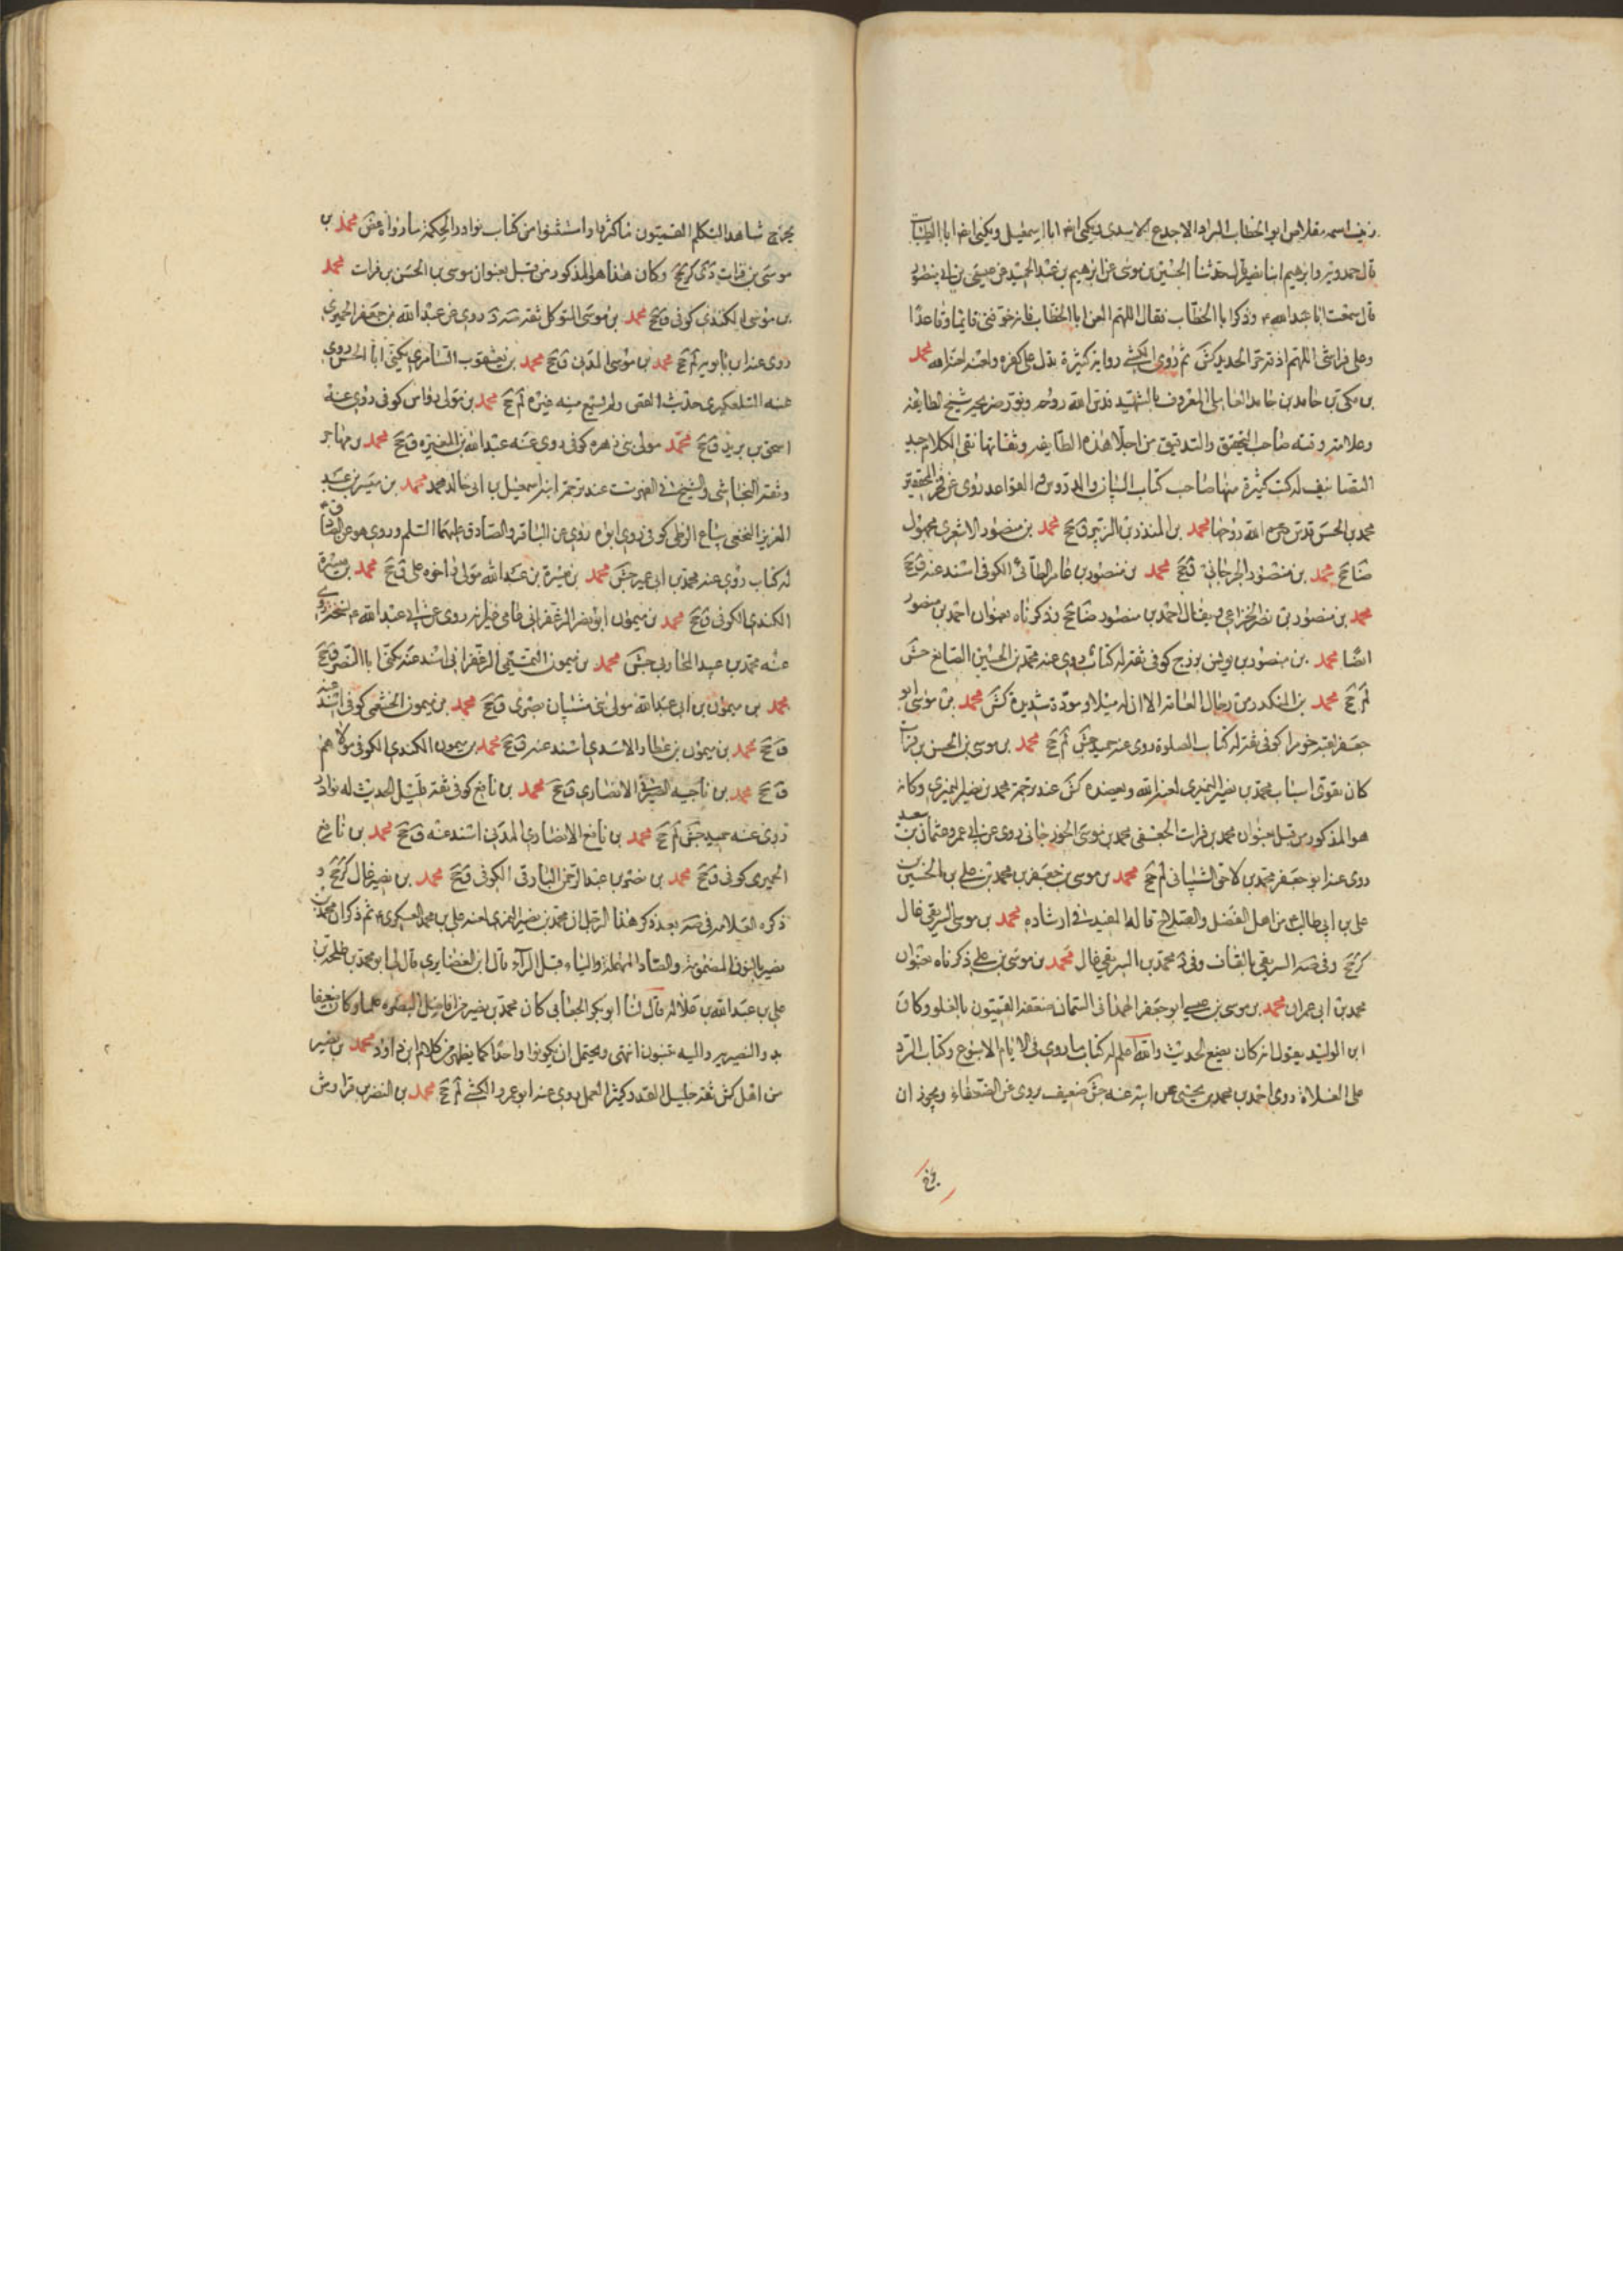 زينب اسمه مقلاص ابو الخطاب البراد الاجدع الاسدى ويكنى ايضا ابا اسمعيل ويكنى ايضا ابا الظبيان
قال حمدويه وابرهيم ابنا نصير قال حدثنا الحسين بن موسى عن ابرهيم بن عبد الحميد عن عيسى بن ابى منصور
قال سمعت ابا عبد الله ع وذكر ابا الخطاب فقال اللهم العن ابا الخطاب فانه خوفنى قائما وقاعدا
وعلى فراشى اللهم اذقه حر الحديد كش ثم روى الكشى رواية كثيرة تدل على كفره ولعنه لعنه الله محمد
بن مكى بن حامد العاملى المعروف بالشهيد قدس الله روحه ونور ضريحه شيخ الطايفة
وعلامته وقته صاحب التحقيق والتدقيق من اجلاء هذه الطايفة وثقاتها نقى الكلام جيد
التصانيف له كتب كثيرة منها صاحب كتاب البيان والدروس والقواعد روى عن فخر المحققين
محمد بن الحسن قدس الله روحهما محمد بن المنذر بن الزبير ق جخ محمد بن منصور الاشعرى مجهول
ضا جخ محمد بن منصور الجرجانى ق جخ محمد بن منصور بن عامر الطائى الكوفى اسند عنه ق جخ
محمد بن منصور بن نصر الخزاعى ويقال احمد بن منصور ضا جخ وذكرناه بعنوان احمد بن منصور
ايضا محمد بن منصور بن يونس بزرج كوفى ثقة له كتاب روى عنه محمد بن الحسين الصائغ جش
لم جخ محمد بن المنكدر من رجال العامة الا ان له ميلا ومودة شديدة كش محمد بن موسى ابو
جعفر لقبه خورا كوفى ثقة له كتاب الصلوة روى عنه حميد جش لم جخ محمد بن موسى بن الحسن بن فرات
كان يقوى اسباب محمد بن نصير النميرى لعنه الله ويعضده كش عند ترجمة محمد بن نصير النميرى وكانه
هو المذكور من قبل بعنوان محمد بن فرات الجعفى محمد بن موسى الخورجانى روى عن ابى عمرو عثمان بن سعيد
روى عنه ابو جعفر محمد بن لاحق الشيبانى لم جخ محمد بن موسى بن جعفر بن محمد بن على بن الحسين بن
على بن ابى طالب ع من اهل الفضل والصلاح قاله المفيد فى ارشاده محمد بن موسى السريقى غال
كر جخ وفى صه السريقى بالقاف وفى د محمد بن السريقى غال محمد بن موسى بن على ذكرناه بعنوان
محمد بن ابى عمران محمد بن موسى بن عيسى ابو جعفر الهمدانى السمان ضعفه القميون بالغلو وكان
ابن الوليد يقول انه كان يضع الحديث والله اعلم له كتاب ما روى فى الايام الاسبوع وكتاب الرد
على الغلاة روى احمد بن محمد بن يحيى عن ابيه عنه جش ضعيف يروى عن الضعفاء ويجوز ان
يخرج شاهدا تكلم القميون فاكثروا واستثنوا من كتاب نوادر الحكمة ما رواه غض محمد بن
موسى بن فرات دى كر جخ وكان هذا هو المذكور من قبل بعنوان موسى بن الحسن بن فرات محمد
بن موسى الكندى كوفى ق جخ محمد بن موسى المتوكل ثقة صه د روى عن عبد الله بن جعفر الحميرى
روى عنه ابن بابويه لم جخ محمد بن موسى المدنى ق جخ محمد بن يعقوب السامرى يكنى ابا الحسن روى
عنه التلعكبرى حديث القص ولم يسمع منه غيره لم جخ محمد بن مولى رواس كوفى روى عنه
اسحق بن يزيد ق جخ محمد مولى بنى زهره كوفى روى عنه عبد الله بن المغيرة ق جخ محمد بن مهاجر
وثقه النجاشى والشيخ فى الفهرست عند ترجمة ابنه اسمعيل بن ابى خالد محمد محمد بن ميسر بن عبد
العزيز النخعى بياع الزطى كوفى روى ابوه روى عن الباقر والصادق عليهما السلم وروى هو عن
له كتاب روى عنه محمد بن ابى عمير جش محمد بن ميسرة بن عبد الله مولى اخوه على ق جخ محمد بن ميسرة
الكندى الكوفى ق جخ محمد بن ميمون ابو نصر الزعفرانى عامى غير انه روى عن ابى عبد الله ع نسخة روى
عنه محمد بن عبيد المحاربى جش محمد بن ميمون التميمى الزعفرانى اسند عنه يكنى ابا النصر ق جخ
محمد بن ميمون بن ابى عبد الله مولى بنى شيبان بصرى ق جخ محمد بن ميمون الخثعمى كوفى اسند عنه
ق جخ محمد بن ميمون بن عطاء الاسدى اسند عنه ق جخ محمد بن ميمون الكندى الكوفى مولاهم
ق جخ محمد بن ناجيه الصيرفى الانصارى ق جخ محمد بن نافع كوفى ثقة قليل الحديث له نوادر
روى عنه حميد جش لم جخ محمد بن نافع الانصارى المدنى اسند عنه ق جخ محمد بن نافع
الحميرى كوفى ق جخ محمد بن نصر بن عبد الرحمن البارقى الكوفى ق جخ محمد بن نصير غال كر جخ و
ذكره العلامة فى صه بعد ذكر هذا الرجل ان محمد بن نصير النميرى لعنه على بن محمد العسكرى ع ثم ذكر ان محمد بن
نصير بالنون المضمومة والصاد المهملة والياء قبل الراء قال ابن الغضايرى قال لى ابو محمد بن طلحة بن
على بن عبد الله بن غلالة قال لنا ابو بكر الجعابى كان محمد بن نصير من افاضل اهل البصره علما وكان ضعيفا
بدو النصيريه واليه ينسبون انتهى ويحتمل ان يكونوا واحدا كما يظهر من كلام ابن داود محمد بن نصير
من اهل كش ثقة جليل القدر كثير العمل روى عنه ابو عمرو الكشى لم جخ محمد بن النضر بن قراوش